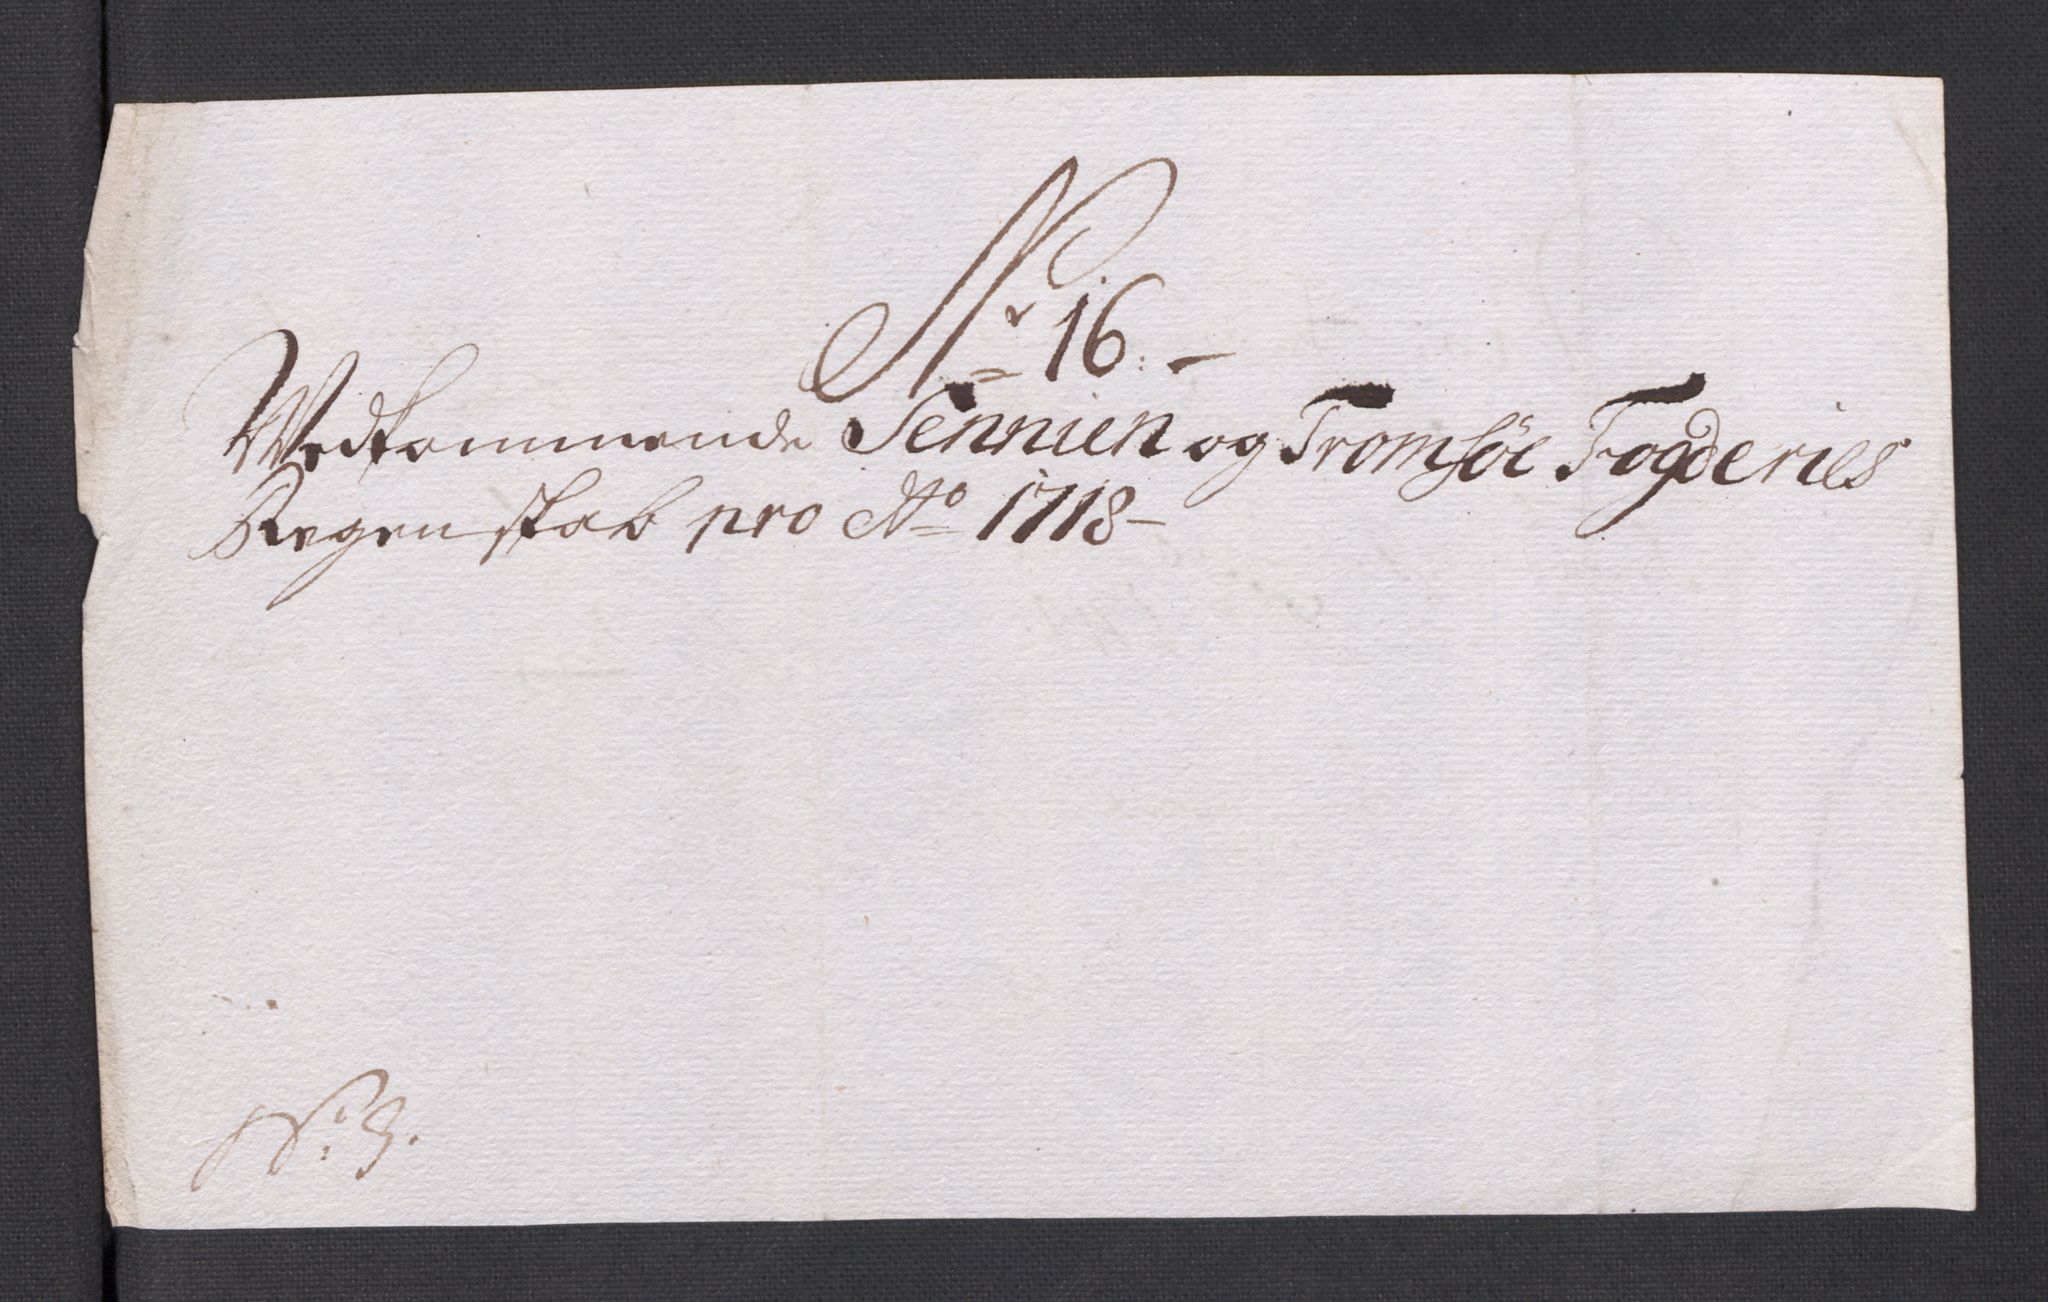 Nr 16. –
Vedkommende Sennien og Tromsöe Fogderies
Regenskab pro Ao 1718 –
No: 3.